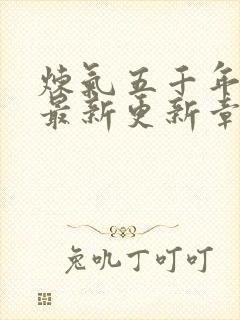 煉氣五千年
最新更新章
兔吼丁叮叮